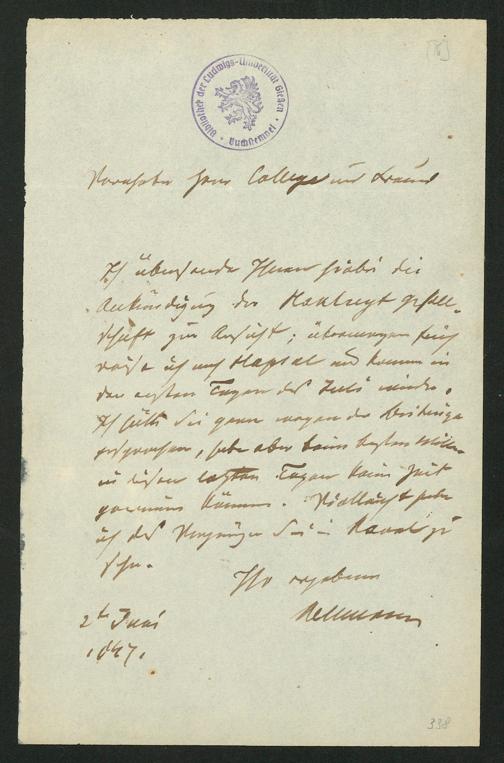 [8]
Bibliothek der Ludwigs-Universität Gießen
Buchstempel
Verehrter Herr College und Freund
Ich übersende Ihnen hiebei die
Ankündigung der gesell-
schaft zur Ansicht; übermorgen früh
reise ich nach Hapsal und komme in
den ersten Tagen des Juli wieder.
Ich hätte Sie gern wegen der
gesprochen, habe aber beim besten Willen
in diesen letzten Tagen keine Zeit
gewinnen können. Vielleicht habe
ich das Vergnügen Sie in Reval zu
sehn.
Ihr ergebener
2t Juni
1847.
338